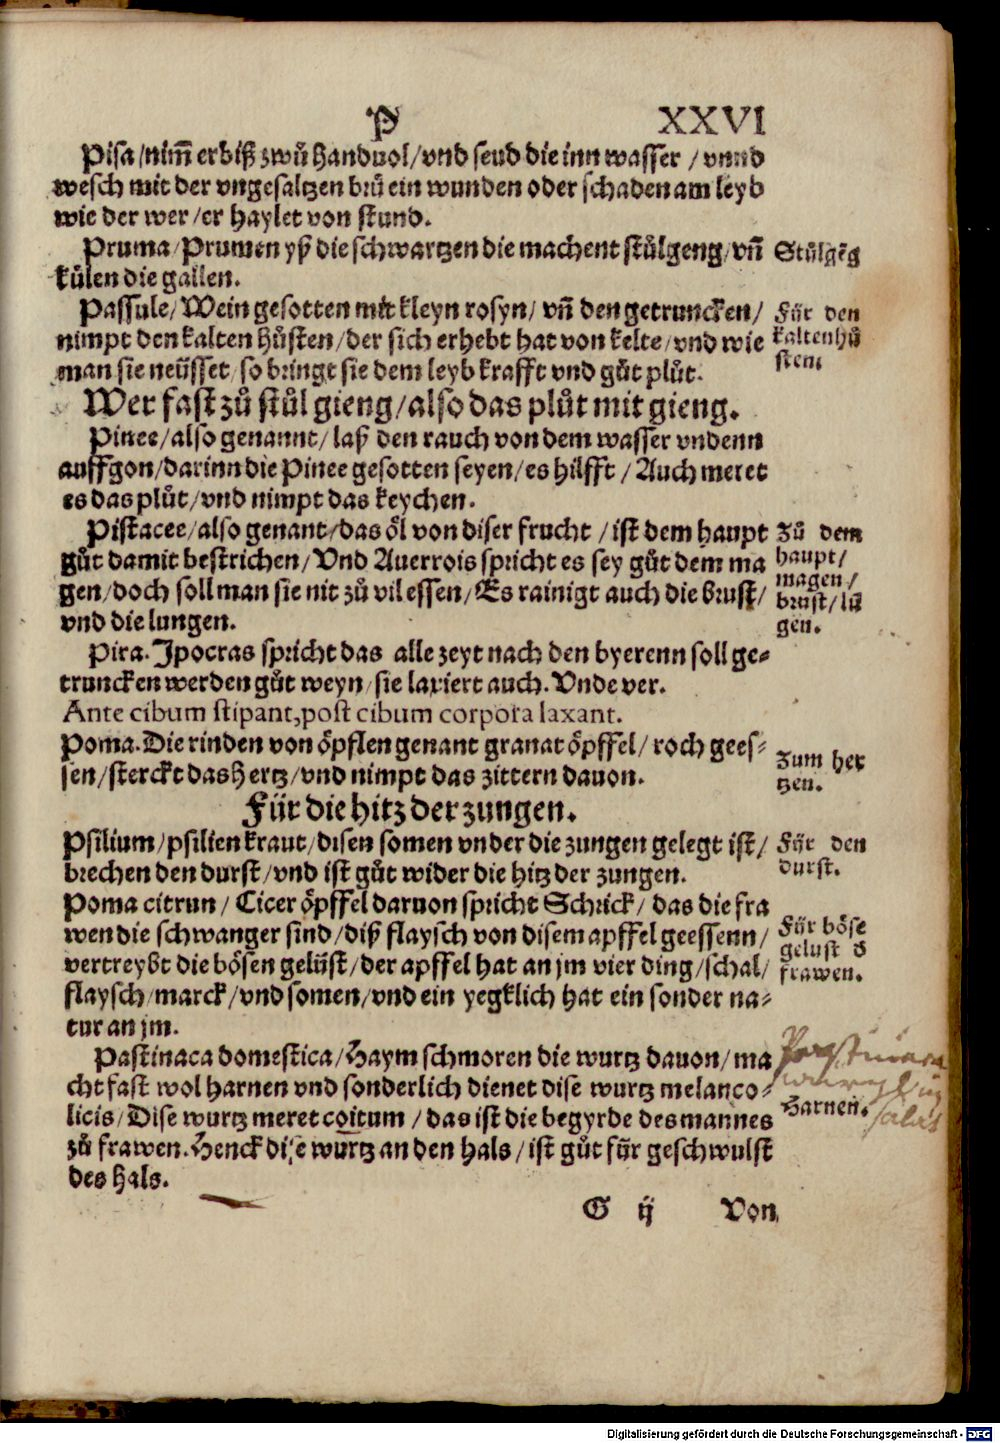 P XXVI
Pisa/nim̄ erbiß zwů handuol/vnd seud die inn wasser/vnnd
wesch mit der vngesaltzen brů ein wunden oder schaden am leyb
wie der wer/er haylet von stund.
Pruma/Prumen yß die schwartzen die machent stůlgeng/vñ
kůlen die gallen.
Stůlgēg
Passule/Wein gesotten mit kleyn rosyn/vñ den getruncken/
nimpt den kalten hůsten/der sich erhebt hat von kelte/vnd wie
man sie neüsset/so bringt sie dem leyb krafft vnd gůt plůt.
Für den
kalten hů
sten.
Wer fast zů stůl gieng/also das plůt mit gieng.
Pinee/also genannt/laß den rauch von dem wasser vndenn
auffgon/darinn die Pinee gesotten seyen/es hilfft/Auch meret
es das plůt/vnd nimpt das keychen.
Pistacee/also genant/das öl von diser frucht/ist dem haupt
gůt damit bestrichen/Vnd Auerrois spricht es sey gůt dem ma
gen/doch soll man sie nit zů vil essen/Es rainigt auch die brust/
vnd die lungen.
Zů dem
haupt/
magen/
brust/lū
gen.
Pira. Ipocras spricht das alle zeyt nach den byerenn soll ge⸗
truncken werden gůt weyn/sie laxiert auch. Vnde ver.
Ante cibum stipant, post cibum corpora laxant.
Poma. Die rinden von öpflen genant granat öpffel/roch gees⸗
sen/sterckt das hertz/vnd nimpt das zittern dauon.
Zum her
tzen.
Für die hitz der zungen.
Psilium/psilien kraut/disen somen vnder die zungen gelegt ist/
brechen den durst/vnd ist gůt wider die hitz der zungen.
Für den
durst.
Poma citrun/Cicer öpffel daruon spricht Schrick/das die fra
wen die schwanger sind/diß flaysch von disem apffel geessenn/
vertreybt die bösen gelüst/der apffel hat an jm vier ding/schal/
flaysch/marck/vnd somen/vnd ein yegklich hat ein sonder na⸗
tur an jm.
Für böse
gelust d
frawen.
Pastinaca domestica/Haym schmoren die wurtz dauon/ma
cht fast wol harnen vnd sonderlich dienet dise wurtz melanco⸗
licis/Dise wurtz meret coitum/das ist die begyrde des mannes
zů frawen. Henck dise wurtz an den hals/ist gůt für geschwulst
des hals.
Harnen.
G ij Von
Digitalisierung gefördert durch die Deutsche Forschungsgemeinschaft - DFG